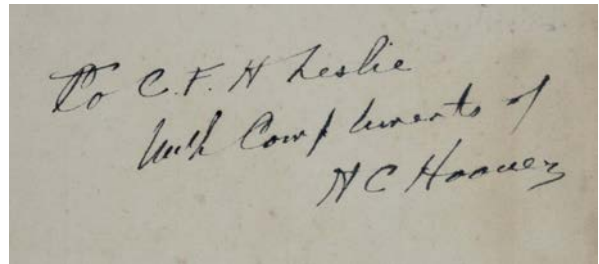 To C.F. H Leslie
with Compliments of
H C Hoover